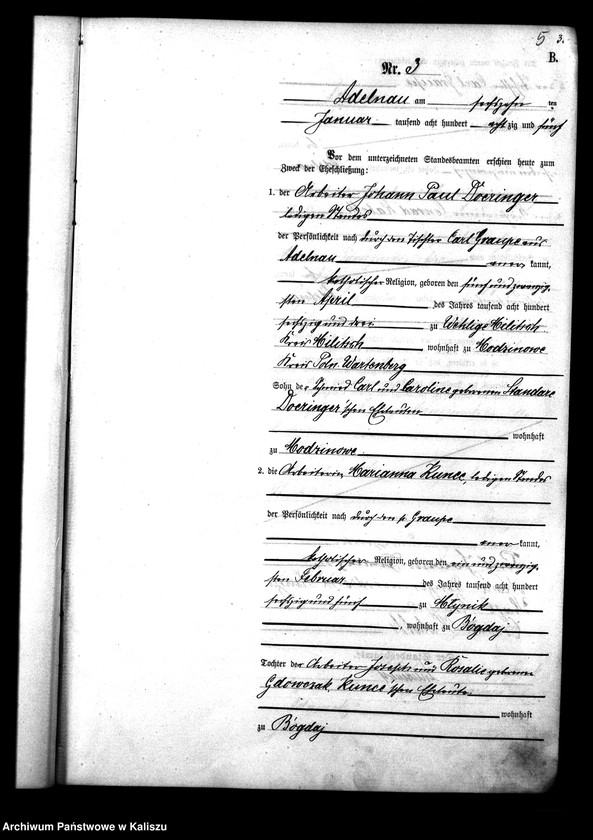 5 3.
B.
Nr. 3
Adelnau am sechszehn ten
Januar tausend acht hundert achtzig und fünf
Vor dem unterzeichneten Standesbeamten erschien heute zum
Zweck der Eheschließung:
1. der Arbeiter Johann Paul Doeringer
ledigen Standes
der Persönlichkeit nach durch den Tischler Carl Graupe aus
Adelnau aner kannt,
katholischer Religion, geboren den fünf und zwanzig
sten April des Jahres tausend acht hundert
sechszig und drei zu Wehlige Militsch
Kreis Militsch, wohnhaft zu Modzinowe
Kreis Poln. Wartenberg
Sohn der Schmied Carl und Caroline geborenen Standare
Doeringer'schen Eheleuten
wohnhaft
zu Modzinowe
2. die Arbeiterin Marianna Kunce, ledigen Standes
der Persönlichkeit nach durch den p. Graupe
aner kannt,
katholischer Religion, geboren den ein und zwanzig
sten Februar des Jahres tausend acht hundert
sechszig und fünf zu Młynik
, wohnhaft zu Bogdaj
Tochter der Arbeiter Joseph und Rosalie geborene
Gdowczak Kunce'schen Eheleute
wohnhaft
zu Bogdaj
Archiwum Państwowe w Kaliszu